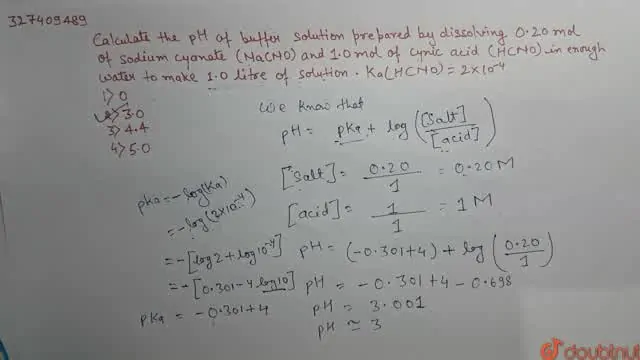 327409489
Calculate the pH of buffer solution prepared by dissolving 0.20 mol
of sodium cyanate (NaCNO) and 1.0 mol of cynic acid (HCNO) in enough
water to make 1.0 litre of solution. Ka(HCNO) = 2×10⁻⁴
1> 0
2> 3.0
3> 4.4
4> 5.0
We know that
pH = pKa + log([Salt]/[acid])
[Salt] = 0.20/1 = 0.20 M
[acid] = 1/1 = 1 M
pKa = -log(Ka)
= -log(2×10⁻⁴)
= -[log2 + log10⁻⁴]
= -[0.301 - 4 log10]
pKa = -0.301+4
pH = (-0.301+4) + log(0.20/1)
pH = -0.301+4-0.698
pH = 3.001
pH ≃ 3
doubtnut